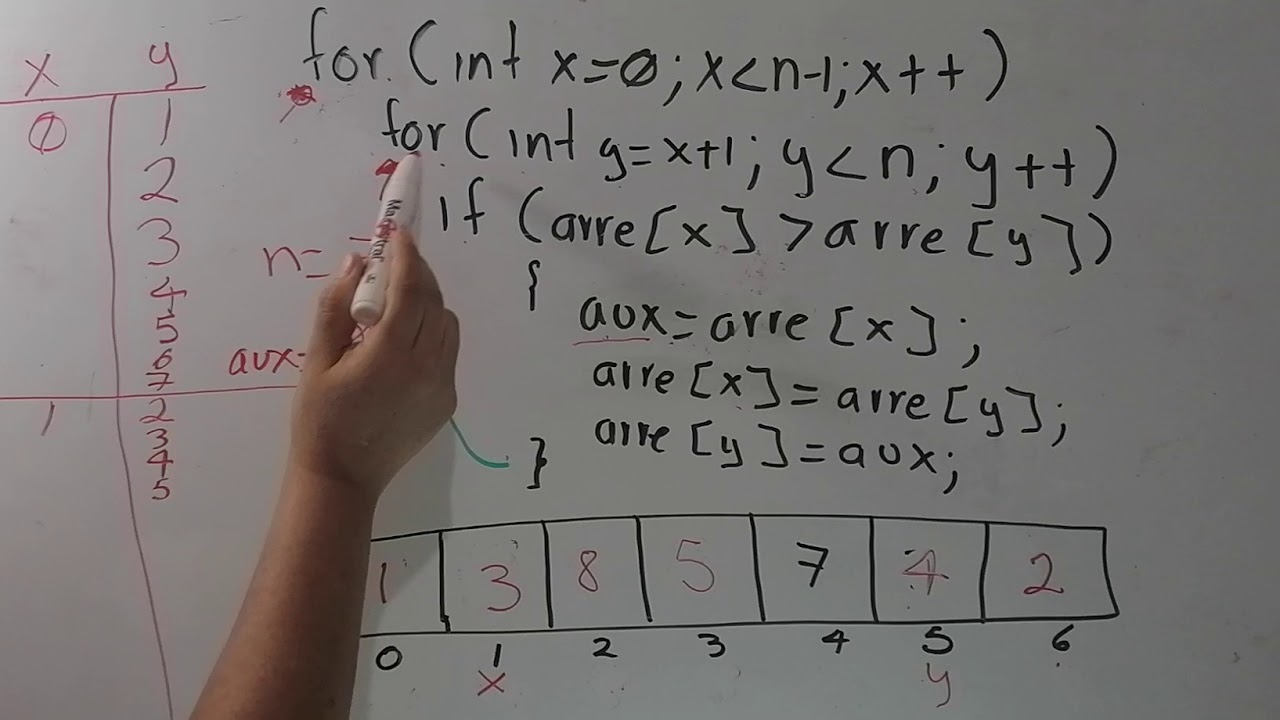 x y
0 1
2
3
4
5
6
7
1 2
3
4
5
for (int x=0; x<n-1; x++)
for (int y=x+1; y<n; y++)
if (arre[x] > arre[y])
{
aux=arre[x];
arre[x]=arre[y];
arre[y]=aux;
}
n=
aux=
1 3 8 5 7 4 2
0 1 2 3 4 5 6
x y